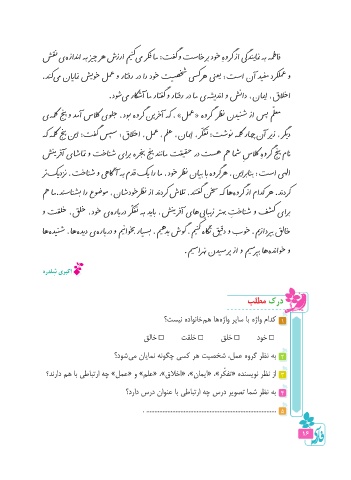 فاطمه به نمایندگی از گروه خود برخاست و گفت: ما فکر می‌کنیم ارزش هر چیز به اندازه‌ی نقش
و عملکرد مفید آن است؛ یعنی هر کسی شخصیّت خود را در رفتار و عمل خویش نمایان می‌کند.
اخلاق، ایمان، دانش و اندیشه‌ی ما در رفتار و گفتار ما آشکار می‌شود.
معلّم پس از شنیدن نظر گروه «عمل»، که آخرین گروه بود، جلوی کلاس آمد و پنج کلمه‌ی
دیگر، زیر آن چهار کلمه نوشت: تفکّر، ایمان، علم، عمل، اخلاق؛ سپس گفت: این پنج کلمه که
نام پنج گروه کلاس شما هم هست در حقیقت مانند پنج پنجره برای شناخت و تماشای آفرینش و
الهی است؛ بنابراین، هر گروه با بیان نظر خود، ما را یک قدم به آگاهی و شناخت، نزدیک‌تر
کردند. هر کدام از گروه‌ها که سخن گفتند، تلاش کردند از نظر خودشان، موضوع را بشناسند. ما هم
برای کشف و شناخت بهتر زیبایی‌های آفرینش، باید به تفکّر درباره‌ی خود، خلق، خلقت و
خالق بپردازیم. خوب و دقیق نگاه کنیم، گوش بدهیم، بسیار بخوانیم و درباره‌ی دیده‌ها، شنیده‌ها
و خوانده‌ها بپرسیم و از پرسیدن نهراسیم.
اکبری شلدره
درک مطلب
۱ کدام واژه با سایر واژه‌ها هم‌خانواده نیست؟
□ خود □ خلق □ خلقت □ خالق
۲ به نظر گروه عمل، شخصیت هر کسی چگونه نمایان می‌شود؟
۳ از نظر نویسنده «تفکّر»، «ایمان»، «اخلاق»، «علم» و «عمل» چه ارتباطی با هم دارند؟
۴ به نظر شما تصویر درس چه ارتباطی با عنوان درس دارد؟
۵ ........................................................ .
۱۶